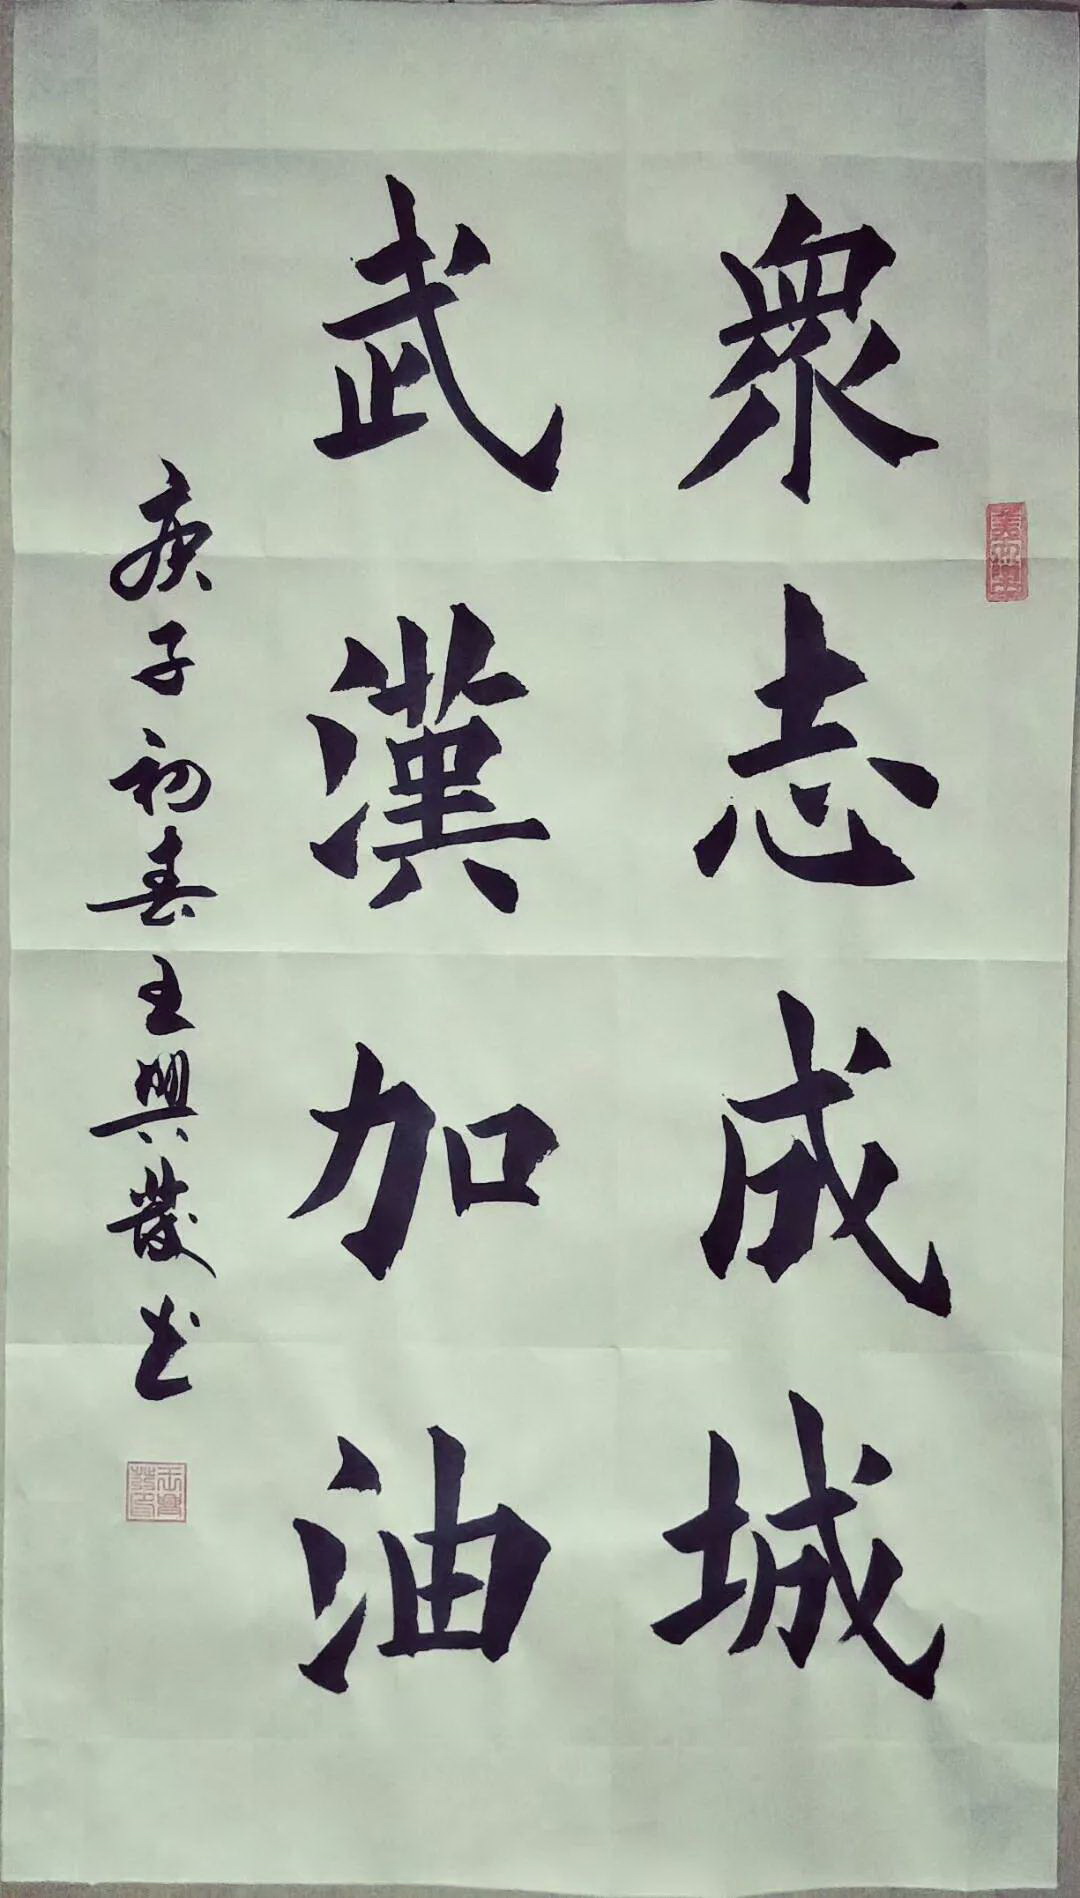 衆志成城
武漢加油
庚子初春王興發书